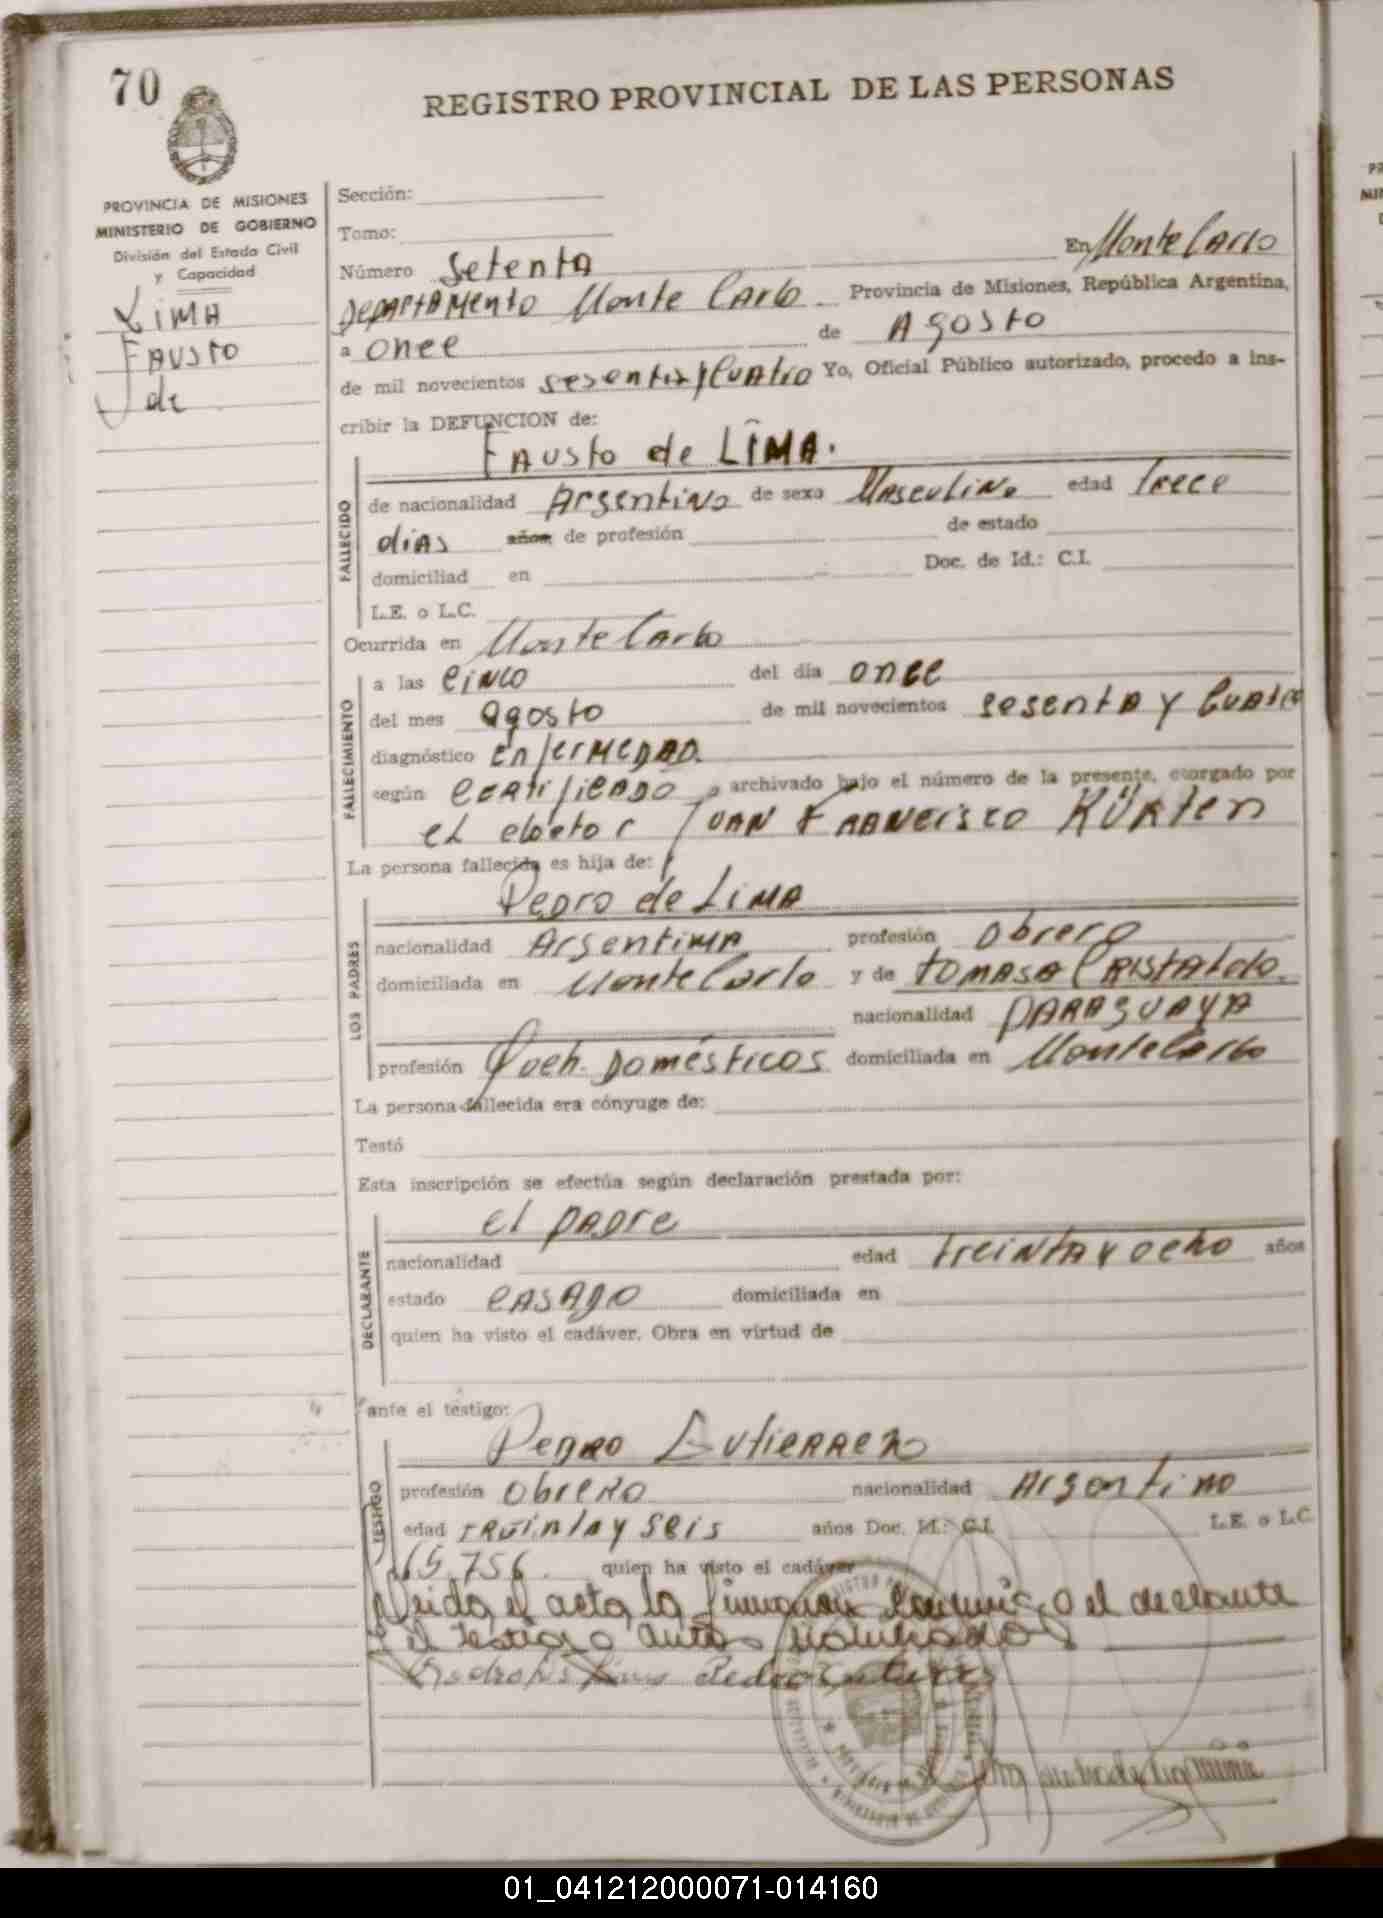 70
REGISTRO PROVINCIAL DE LAS PERSONAS
PROVINCIA DE MISIONES
MINISTERIO DE GOBIERNO
División del Estado Civil
y Capacidad
LIMA
FAUSTO
de
Sección:
Tomo:
Número Setenta En Monte Carlo
Departamento Monte Carlo Provincia de Misiones, República Argentina,
a once de Agosto
de mil novecientos sesenta y cuatro Yo, Oficial Público autorizado, procedo a ins-
cribir la DEFUNCION de:
Fausto de LIMA.
FALLECIDO
de nacionalidad Argentina de sexo Masculino edad trece
dias años de profesión de estado
domiciliad en Doc. de Id.: C.I.
L.E. o L.C.
Ocurrida en Monte Carlo
FALLECIMIENTO
a las cinco del día once
del mes agosto de mil novecientos sesenta y cuatro
diagnóstico Enfermedad.
según certificado archivado bajo el número de la presente, otorgado por
el doctor Juan Francisco KÜRten
La persona fallecida es hija de:
LOS PADRES
Pedro de Lima
nacionalidad Argentina profesión Obrero
domiciliada en Monte Carlo y de Tomasa Cristaldo.
nacionalidad paraguaya
profesión Queh. Domésticos domiciliada en Monte Carlo
La persona fallecida era cónyuge de:
Testó
Esta inscripción se efectúa según declaración prestada por:
DECLARANTE
el padre
nacionalidad edad treinta y ocho años
estado casado domiciliada en
quien ha visto el cadáver. Obra en virtud de
ante el testigo:
TESTIGO
Pedro Gutierrez
profesión obrero nacionalidad Argentino
edad treinta y seis años Doc. Id.: C.I. L.E. o L.C.
quien ha visto el cadáver
el acta la el
el testigo antes
Pedro
01_041212000071-014160